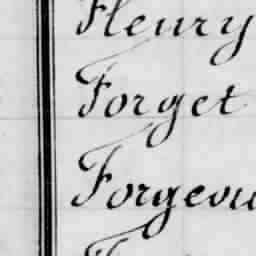 Fleury
Forget
Forgeou